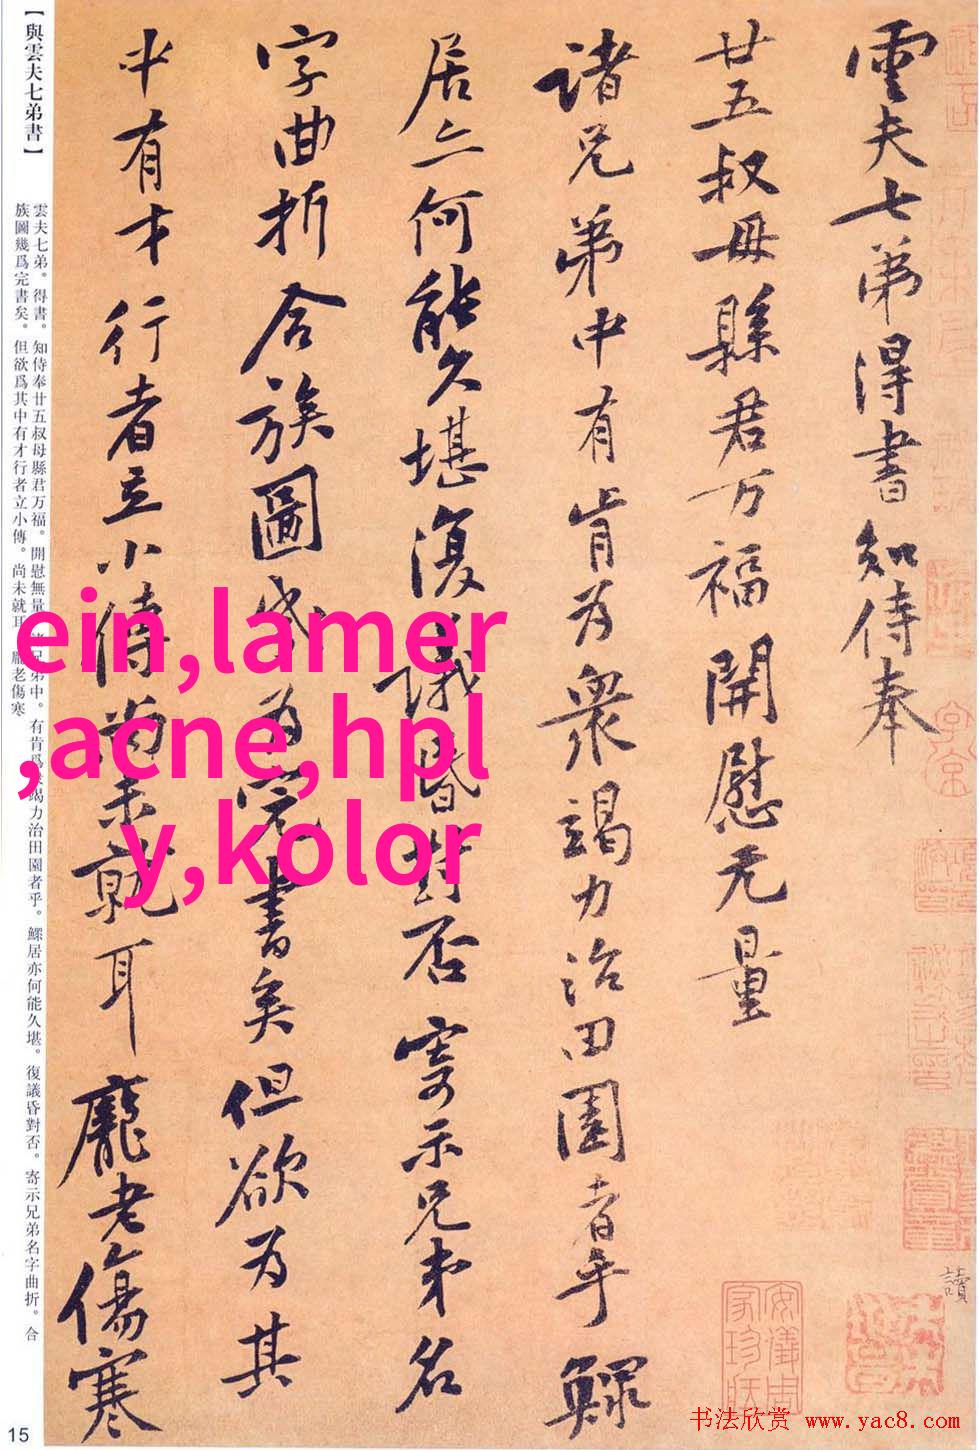 雲夫七弟得書知侍奉
廿五叔母縣君万福開慰无量
諸兄弟中有肯为衆竭力治田園者乎鰥
居亦何能久堪復議昏對否寄示兄弟名
字曲折合族圖幾为完書矣但欲为其
中有才行者立小傳尚未就耳龐老傷寒
讀
安儀周家珍藏
【與雲夫七弟書】
雲夫七弟。得書。知侍奉廿五叔母縣君万福。開慰無量。諸兄弟中。有肯爲衆竭力治田園者乎。鰥居亦何能久堪。復議昏對否。寄示兄弟名字曲折。合
族圖幾爲完書矣。但欲爲其中有才行者立小傳。尚未就耳。龐老傷寒
15
ein,lamer
,acne,hpl
y,kolor
书法欣赏 www.yac8.com